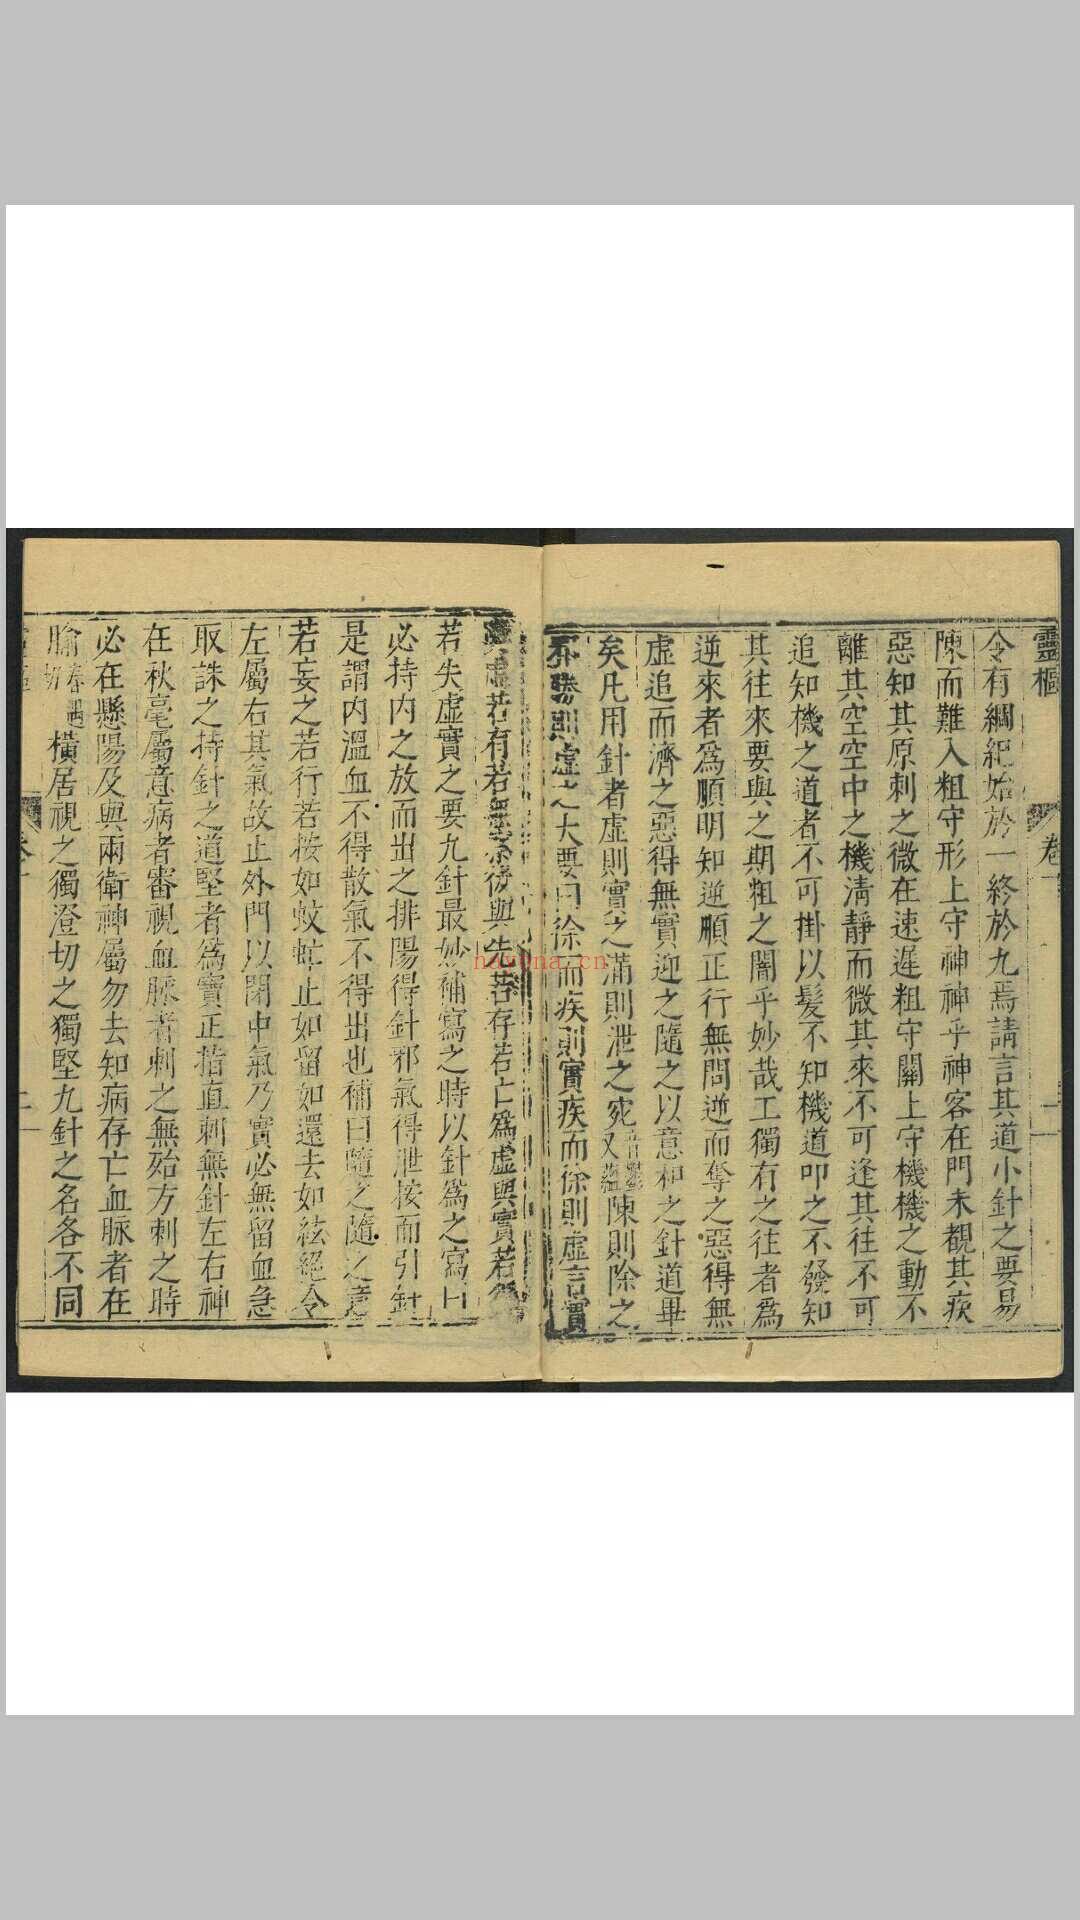 靈樞 卷一 二
令有綱紀始於一終於九焉請言其道小針之要易
陳而難入粗守形上守神神乎神客在門未覩其疾
惡知其原刺之微在速遲粗守關上守機機之動不
離其空空中之機清靜而微其來不可逢其往不可
追知機之道者不可掛以髮不知機道叩之不發知
其往來要與之期粗之闇乎妙哉工獨有之往者為
逆來者為順明知逆順正行無問逆而奪之惡得無
虛追而濟之惡得無實迎之隨之以意和之針道畢
矣凡用針者虛則實之滿則泄之宛音鬱又蘊陳則除之
邪勝則虛之大要曰徐而疾則實疾而徐則虛言實
與虛若有若無察後與先若存若亡為虛與實若得
若失虛實之要九針最妙補寫之時以針為之寫曰
必持內之放而出之排陽得針邪氣得泄按而引針
是謂內溫血不得散氣不得出也補曰隨之隨之意
若妄之若行若按如蚊虻止如留如還去如絃絕令
左屬右其氣故止外門以閉中氣乃實必無留血急
取誅之持針之道堅者為寶正指直刺無針左右神
在秋毫屬意病者審視血脈者刺之無殆方刺之時
必在懸陽及與兩衛神屬勿去知病存亡血脈者在
腧春遇切橫居視之獨澄切之獨堅九針之名各不同
havona.cn